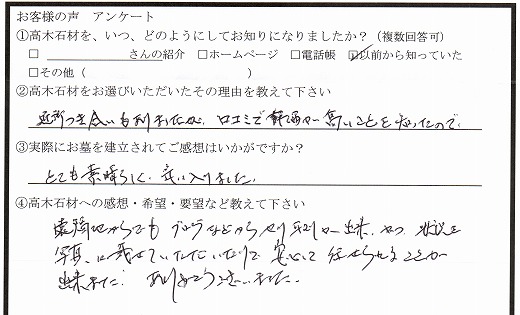 お客様の声 アンケート
①高木石材を、いつ、どのようにしてお知りになりましたか？（複数回答可）
□ さんの紹介 □ホームページ □電話帳 ☑以前から知っていた
□その他（ ）
②高木石材をお選びいただいたその理由を教えて下さい
近所つき合いも有りましたが、口コミで評価が高いことを知ったので
③実際にお墓を建立されてご感想はいかがですか？
とても素晴らしく、気に入りました。
④高木石材への感想・希望・要望など教えて下さい
遠隔地からでも ブログなどから やり取りが出来、かつ、状況を
写真に載せていただいたりで 安心して 任せられることが
出来ました。ありがとうございました。